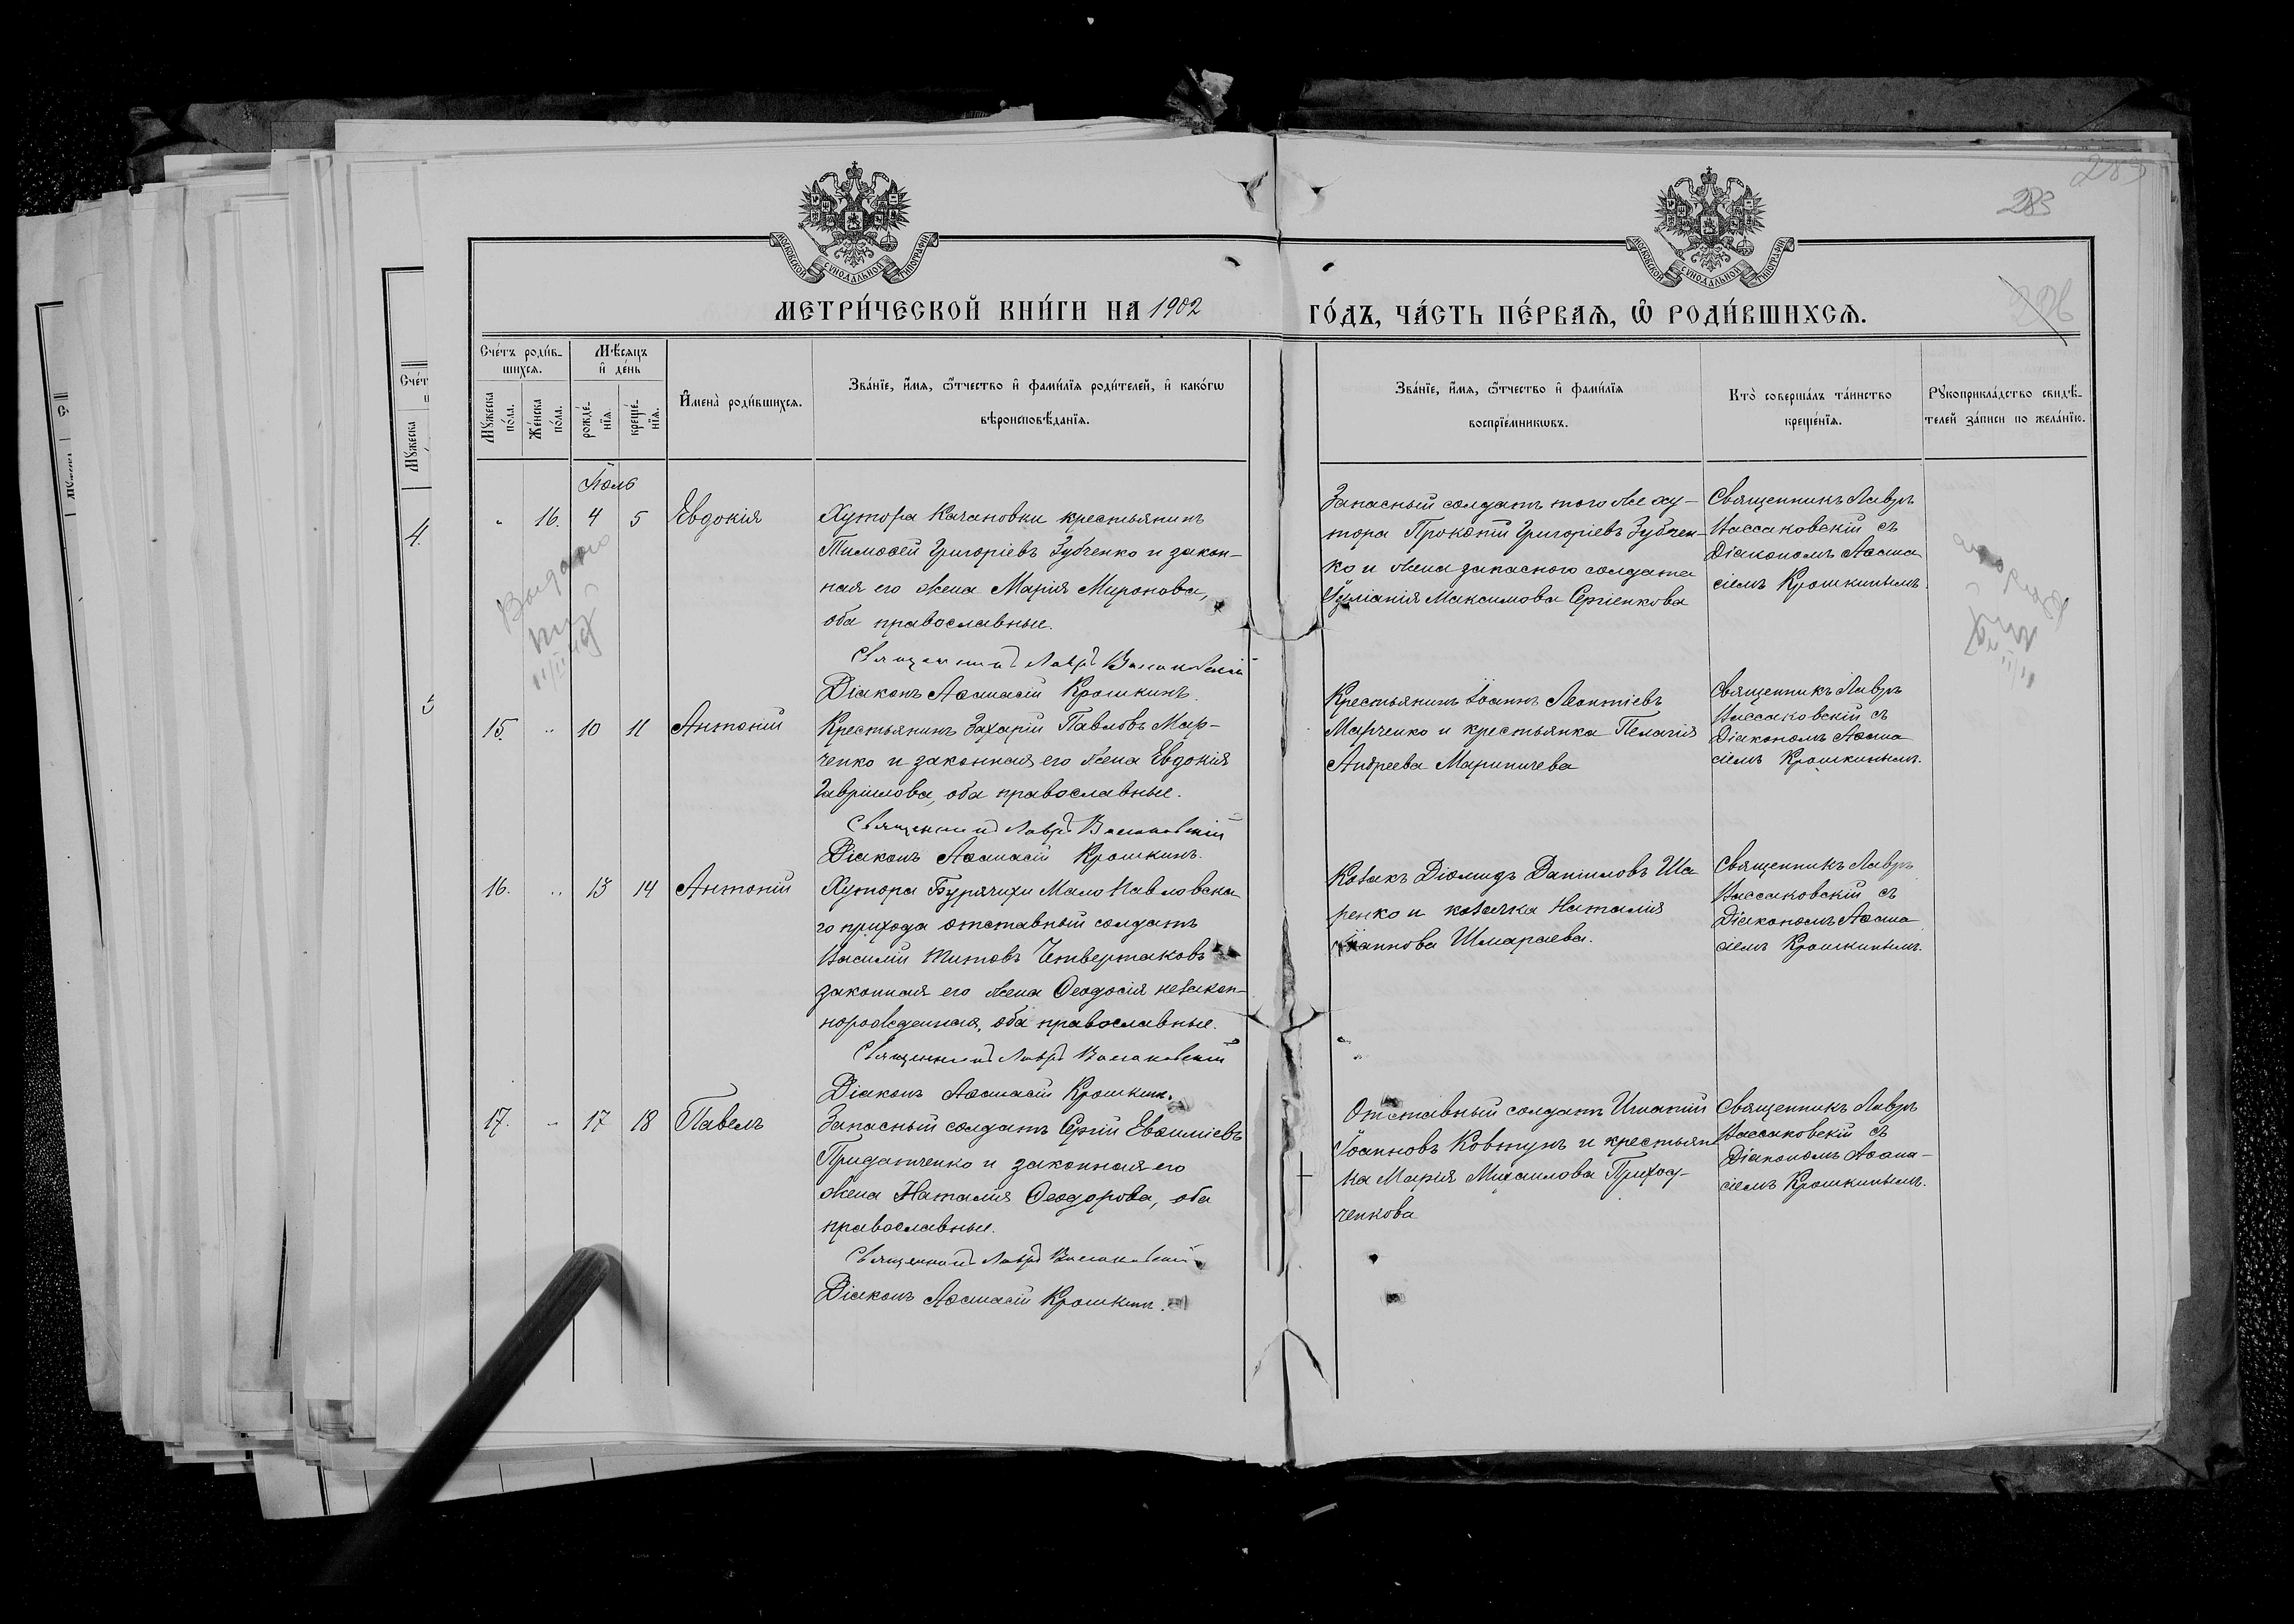 283
МОСКОВСКОЙ СѴНОДАЛЬНОЙ ТИПОГРАФІИ
МОСКОВСКОЙ СѴНОДАЛЬНОЙ ТИПОГРАФІИ
МЕТРИ́ЧЕСКОЙ КНИ́ГИ НА 1902
ГО́ДЪ, ЧА́СТЬ ПЕ́РВАѦ, Ѽ РОДИ́ВШИХСѦ.
Сче́тъ роди́в-
шихсѧ.
Мꙋжеска по́ла.
Же́нска по́ла.
Мѣ́сѧцъ
и҆ де́нь
рожде́-
нїѧ.
креще́-
нїѧ.
И҆мена̀ роди́вшихсѧ.
Зва́нїе, и҆́мѧ, ѻ҆́тчество и҆ фами́лїѧ роди́телей, и҆ како́гѡ
вѣроисповѣ́данїѧ.
Зва́нїе, и҆́мѧ, ѻ҆́тчество и҆ фами́лїѧ
воспрїе́мникѡвъ.
Кто̀ соверша́лъ та́инство
креще́нїѧ.
Рꙋкоприкла́дство свидѣ́-
телей за́писи по жела́нїю.
Іюль
16. 4 5 Евдокія
Хутора Качановки крестьянинъ
Тимоѳей Григоріевъ Зубченко и закон-
ная его жена Марія Миронова,
оба православные.
Священникъ Лавръ Вассаковскій
Діаконъ Аѳанасій Крошкинъ.
Запасный солдатъ того же ху-
тора Прокопій Григоріевъ Зубчен-
ко и жена запаснаго солдата
Іуліанія Максимова Сергіенкова
Священникъ Лавръ
Вассаковскій съ
Діакономъ Аѳана
сіемъ Крошкинымъ.
15. " 10 11 Антоній
Крестьянинъ Захарій Павловъ Мар-
ченко и законная его жена Евдокія
Гавріилова, оба православные.
Священникъ Лавръ Вассаковскій
Діаконъ Аѳанасій Крошкинъ.
Крестьянинъ Іоаннъ Леонтіевъ
Марченко и крестьянка Пелагія
Андреева Мариничева
Священникъ Лавръ
Вассаковскій съ
Діакономъ Аѳана
сіемъ Крошкинымъ.
16. " 13 14 Антоній
Хутора Бурячихи Мало Павловска-
го прихода отставный солдатъ
Василій Титовъ Четвертаковъ
законная его жена Ѳеодосія незакон-
норожденная, оба православные.
Священникъ Лавръ Вассаковскій
Діаконъ Аѳанасій Крошкинъ.
Козакъ Діомидъ Даніиловъ Ша
ренко и козачка Наталія
Іоаннова Шмараева.
Священникъ Лавръ
Вассаковскій съ
Діакономъ Аѳана
сіемъ Крошкинымъ.
17. " 17 18 Павелъ
Запасный солдатъ Сергій Евѳиміевъ
Придатченко и законная его
жена Наталія Ѳеодорова, оба
православные.
Священникъ Лавръ Вассаковскій
Діаконъ Аѳанасій Крошкинъ.
Отставный солдатъ Игнатій
Іоанновъ Ковтунъ и крестьян
ка Марія Михаилова Приход-
ченкова
Священникъ Лавръ
Вассаковскій съ
Діакономъ Аѳана-
сіемъ Крошкинымъ.